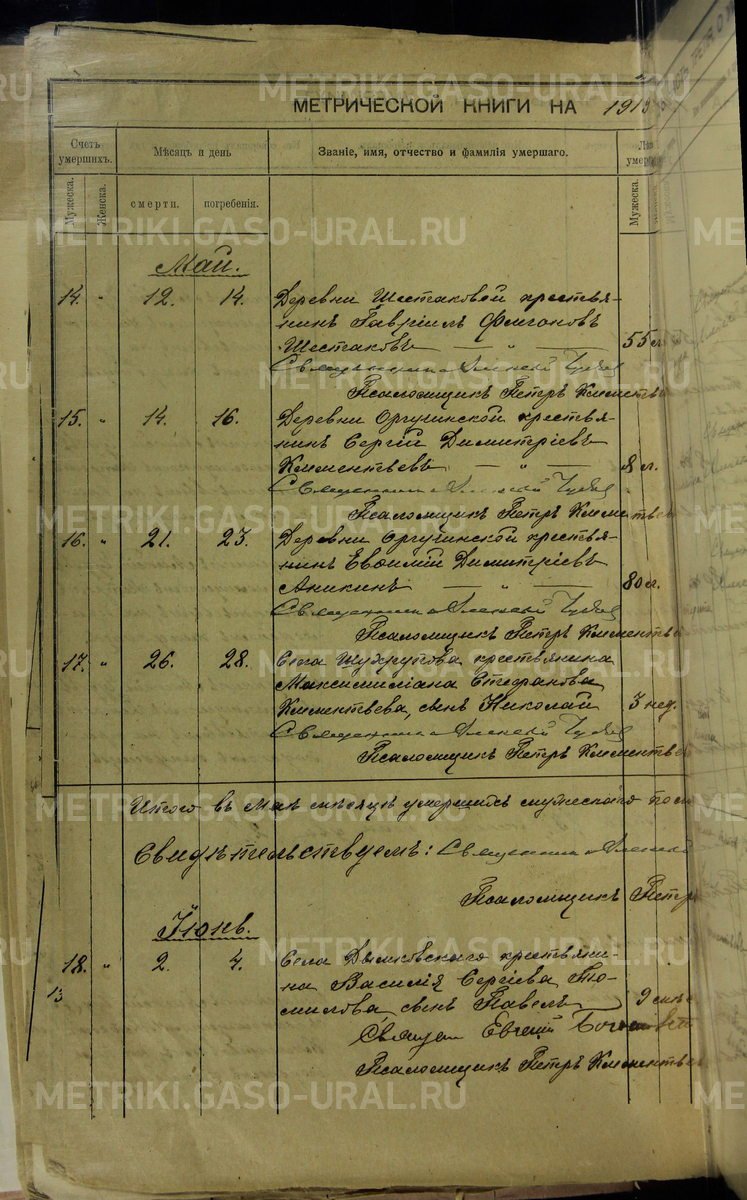 МЕТРИЧЕСКОЙ КНИГИ НА 1913
Счетъ умершихъ.
Мѣсяцъ и день
Званіе, имя, отчество и фамилія умершаго.
Мужеска.
Женска.
смерти.
погребенія.
Мужеска.
Май.
14. " 12. 14. Деревни Шестаковой крестья-
нинъ Гавріилъ
Шестаковъ — " — 55 л.
Священникъ Алексей
Псаломщикъ Петръ Клементьев
15. " 14. 16. Деревни Оргучинской крестья-
нинъ Сергій Димитріевъ
Клементьевъ — " — 8 л.
Священникъ Алексей
Псаломщикъ Петръ Клементьев
16. " 21. 23. Деревни Оргучинской крестья-
нинъ Евѳимій Димитріевъ
Аникинъ — " — 80 л.
Священникъ Алексей
Псаломщикъ Петръ Клементье
17. " 26. 28. Села Шухрупова крестьянина
Максимиліана Стефанова
Клементьева, сынъ Николай 3 нед.
Священникъ Алексей
Псаломщикъ Петръ Клементье
Итого въ Маѣ мѣсяцѣ умершихъ мужескаго пола
Свидѣтельствуемъ: Священникъ Алексей
Псаломщикъ Петръ
Іюнь.
18. " 2. 4. Села Дымковскаго крестьяни-
13
на Василія Сергіева То-
милова, сынъ Павелъ — 9
Священ Евгеній
Псаломщикъ Петръ Клементьев
METRIKI.GASO-URAL.RU